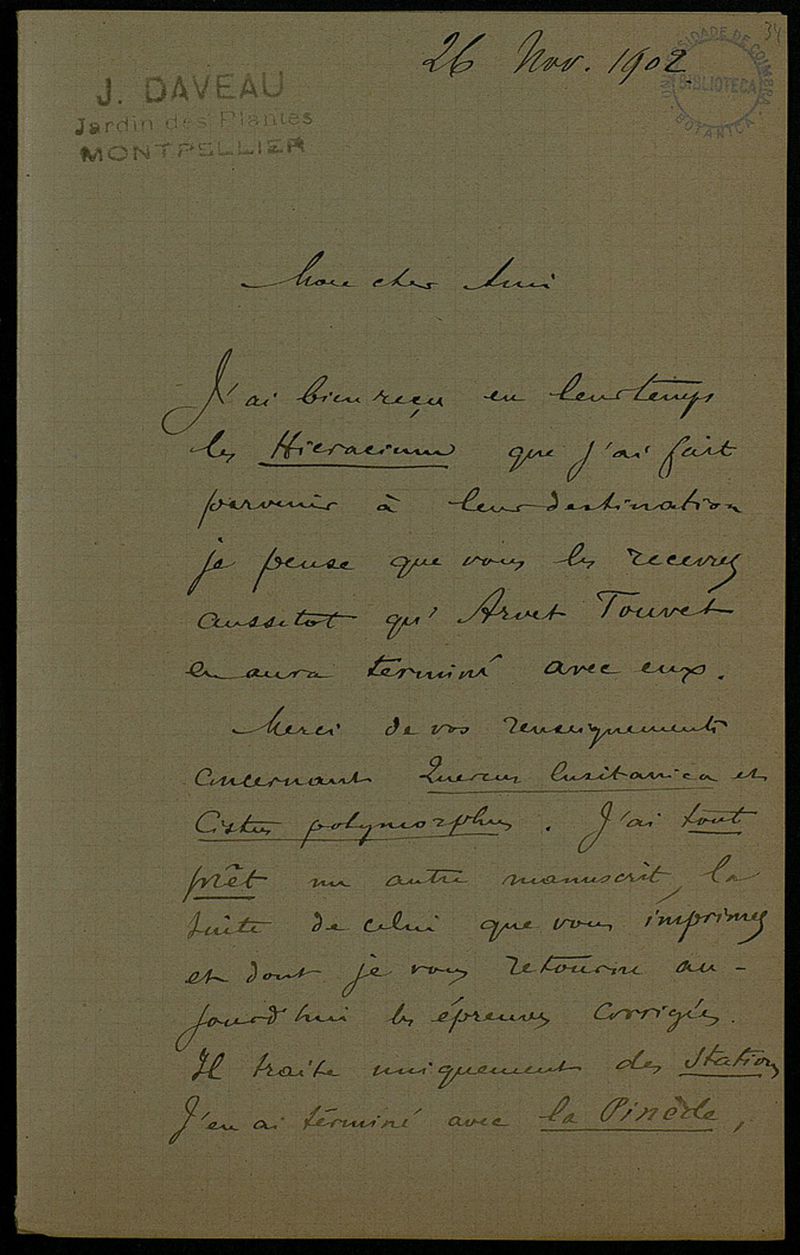 34
26 Nov. 1902
UNIVERSIDADE DE COIMBRA
BIBLIOTECA
BOTANICA
J. DAVEAU
Jardin des Plantes
MONTPELLIER
Mon cher Ami
J'ai bien reçu en leur temps
les Hieracium que j'ai fait
parvenir à leur destination
je pense que vous les recevrez
aussitot qu'Arvet Touvet
en aura terminé avec eux.
Merci de vos renseignements
concernant Quercus lusitanica et
Cistus polymorphus. J'ai tout
prêt un autre manuscrit, la
suite de celui que vous imprimez
et dont je vous retourne au-
jourd'hui les épreuves corrigées.
Il traite uniquement des Stations
J'en ai términé avec la Pinède,